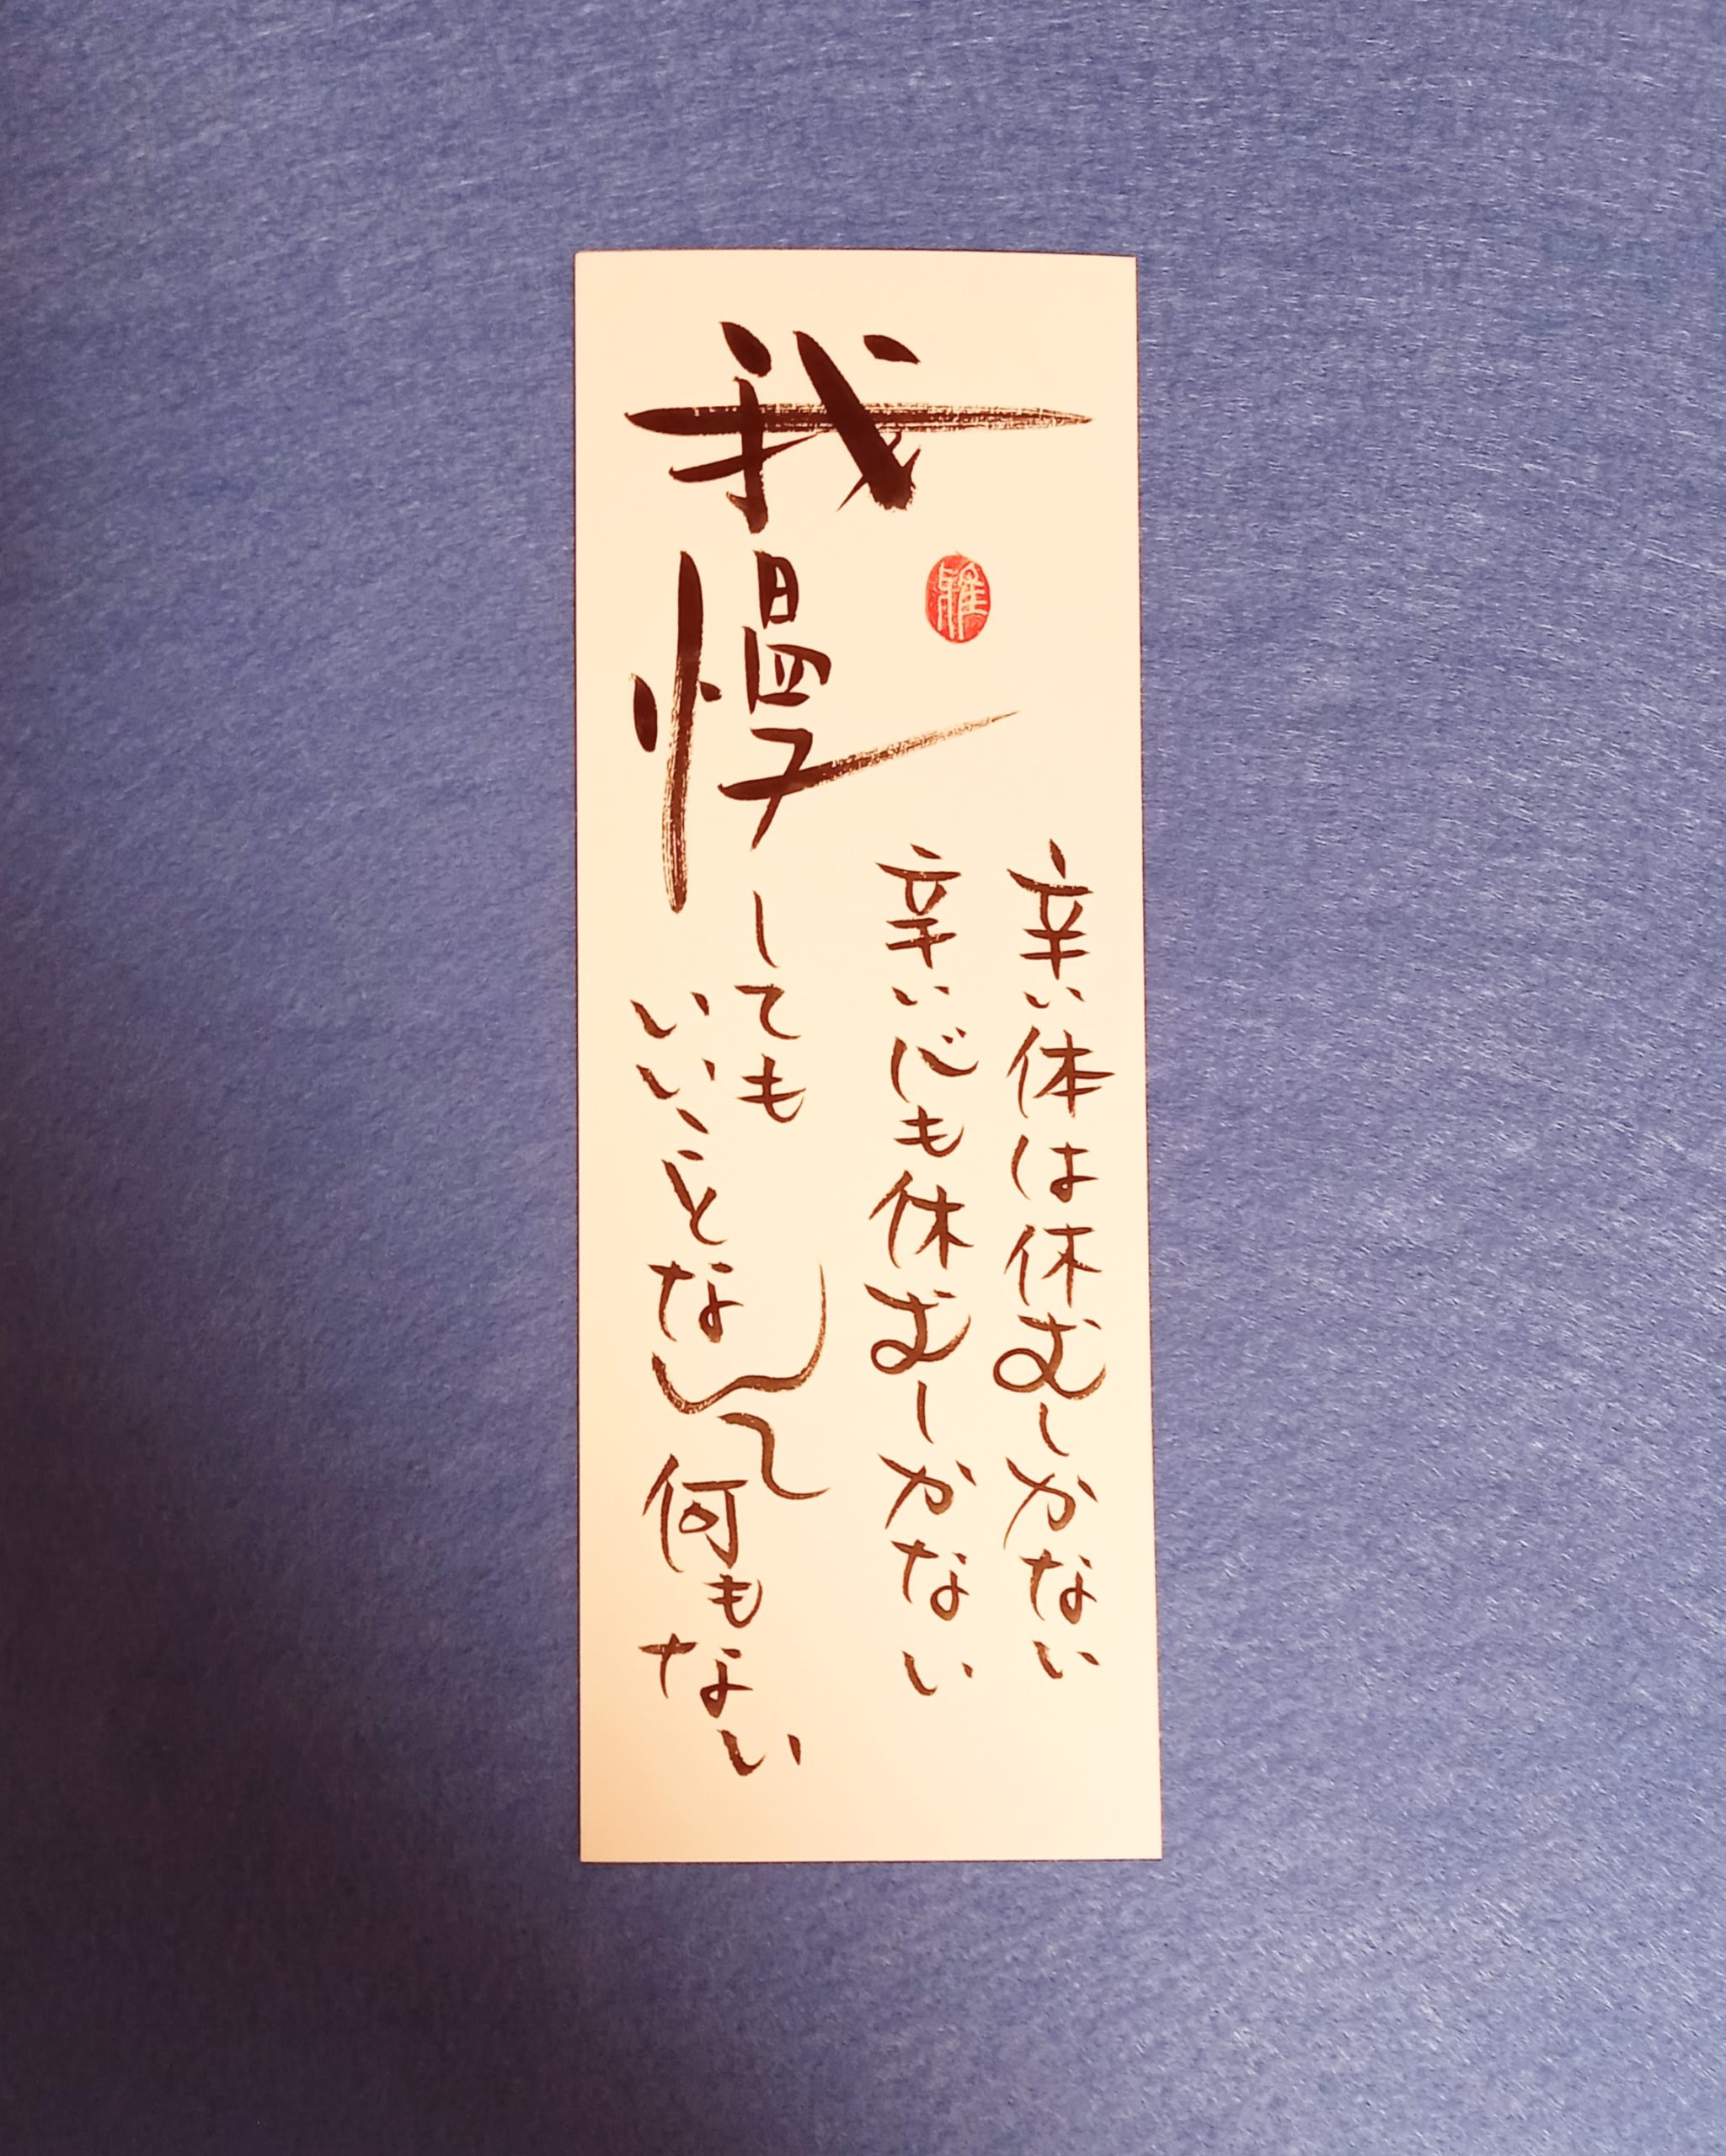 辛い体は休むしかない
辛い心も休むしかない
我慢しても
いいことなんて何もない
雅